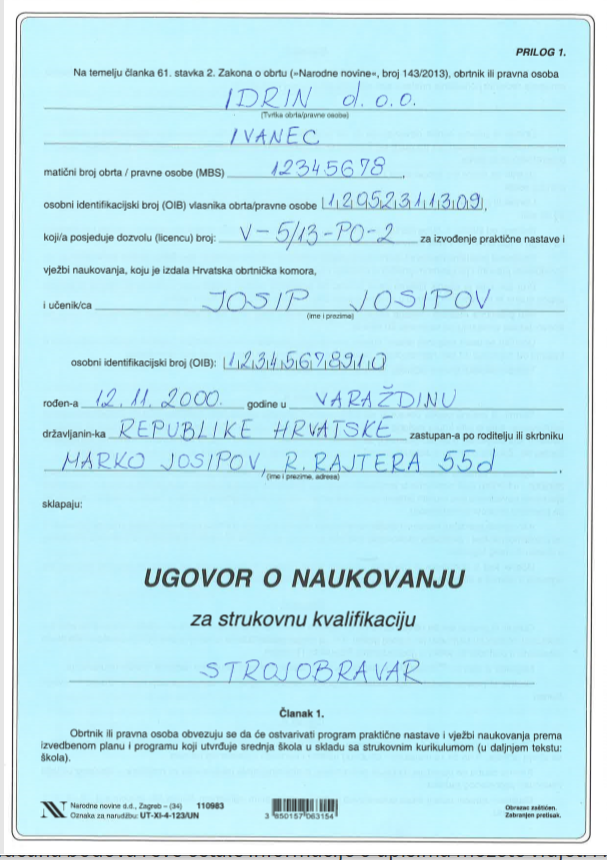 PRILOG 1.
Na temelju članka 61. stavka 2. Zakona o obrtu (»Narodne novine«, broj 143/2013), obrtnik ili pravna osoba
IDRIN d.o.o.
(Tvrtka obrta/pravne osobe)
IVANEC
matični broj obrta / pravne osobe (MBS) 12345678,
osobni identifikacijski broj (OIB) vlasnika obrta/pravne osobe 12952311309,
koji/a posjeduje dozvolu (licencu) broj: V-5/13-PO-2 za izvođenje praktične nastave i
vježbi naukovanja, koju je izdala Hrvatska obrtnička komora,
i učenik/ca JOSIP JOSIPOV
(ime i prezime)
osobni identifikacijski broj (OIB): 12345678910
rođen-a 12.11.2000. godine u VARAŽDINU
državljanin-ka REPUBLIKE HRVATSKE zastupan-a po roditelju ili skrbniku
MARKO JOSIPOV, R. RAJTERA 55d,
(ime i prezime, adresa)
sklapaju:
UGOVOR O NAUKOVANJU
za strukovnu kvalifikaciju
STROJOBRAVAR
Članak 1.
Obrtnik ili pravna osoba obvezuju se da će ostvarivati program praktične nastave i vježbi naukovanja prema
izvedbenom planu i programu koji utvrđuje srednja škola u skladu sa strukovnim kurikulumom (u daljnjem tekstu:
škola).
Narodne novine d.d., Zagreb – (34) 110983
Oznaka za narudžbu: UT-XI-4-123/UN
3 850157 063154
Obrazac zaštićen.
Zabranjen pretisak.